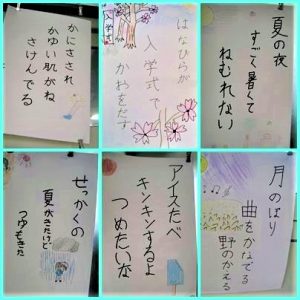 かにさされ
かゆい肌がね
さけんでる
入学式
はなびらが
入学式で
かおをだす
夏の夜
すごく暑くて
ねむれない
せっかくの
夏がきたけど
つゆもきた
アイスたべ
キンキンするよ
つめたいな
月のぼり
曲をかなでる
野のかえる